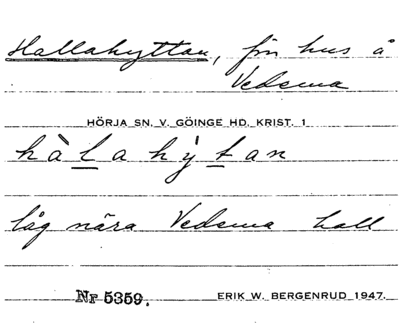 Hallahyttan, fsn hus å
Vedema
HÖRJA SN. V. GÖINGE HD. KRIST. 1
hàlahy̆tan
låg nära Vedema hall
Nr 5359.
ERIK W. BERGENRUD 1947.